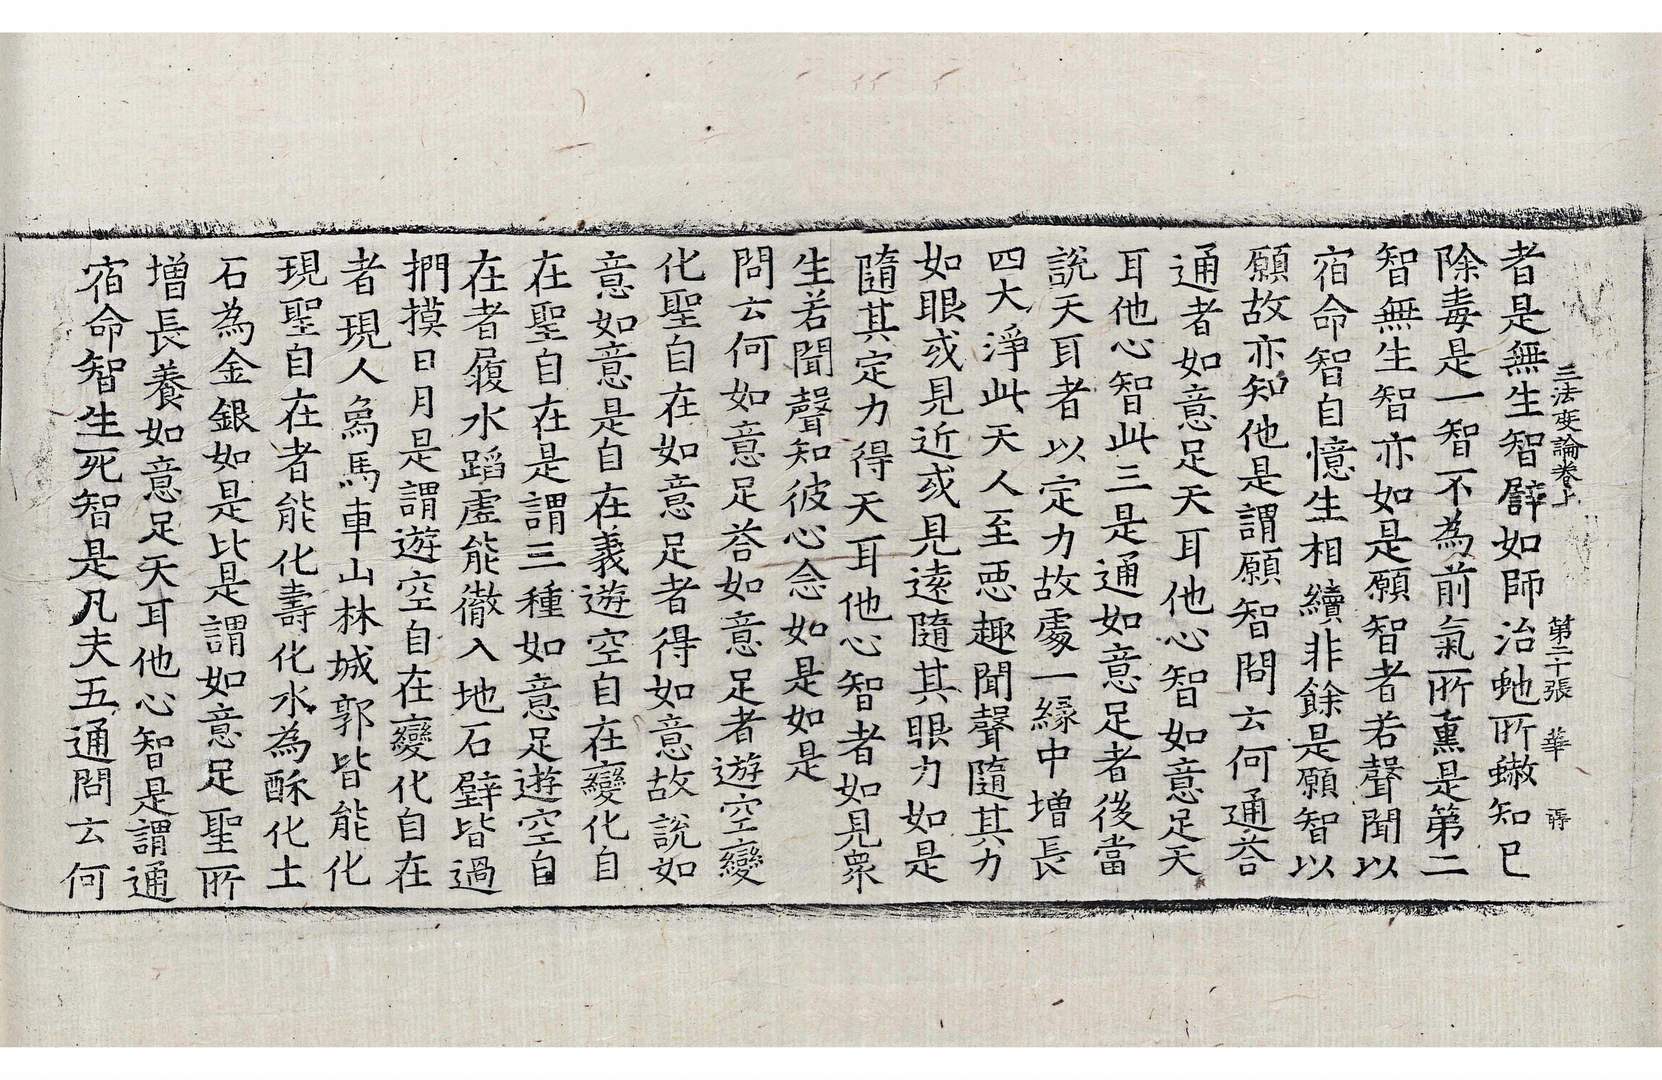 三法度論卷上　第二十張　華
者是無生智譬如師治虵所螫知已
除毒是一智不為前氣所熏是第二
智無生智亦如是願智者若聲聞以
宿命智自憶生相續非餘是願智以
願故亦知他是謂願智問云何通荅
通者如意足天耳他心智如意足天
耳他心智此三是通如意足者後當
說天耳者以定力故處一緣中增長
四大淨此天人至惡趣聞聲隨其力
如眼或見近或見遠隨其眼力如是
隨其定力得天耳他心智者如見衆
生若聞聲知彼心念如是如是
問云何如意足荅如意足者遊空變
化聖自在如意足者得如意故說如
意如意是自在義遊空自在變化自
在聖自在是謂三種如意足遊空自
在者履水蹈虛能徹入地石壁皆過
捫摸日月是謂遊空自在變化自在
者現人象馬車山林城郭皆能化
現聖自在者能化壽化水為酥化土
石為金銀如是比是謂如意足聖所
增長養如意足天耳他心智是謂通
宿命智生死智是凡夫五通問云何